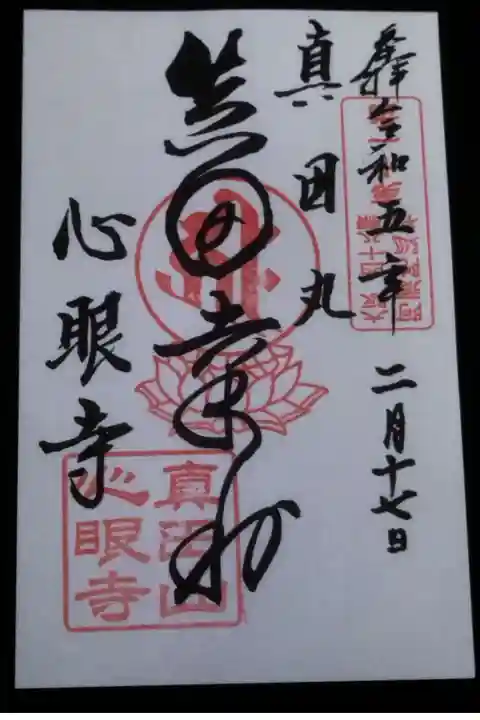 奉拝 令和五年二月十七日
真田丸
真田幸村
心眼寺
真田山
心眼寺